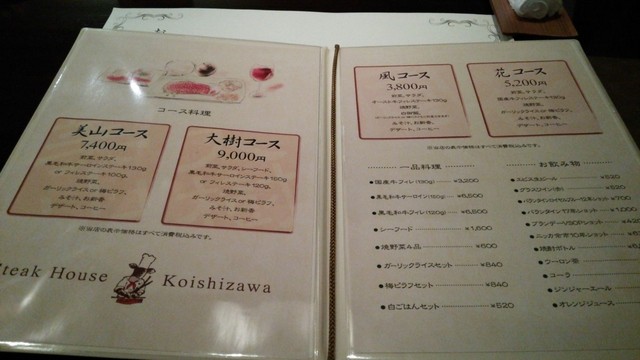 コース料理
美山コース
7,400円
前菜、サラダ、
黒毛和牛サーロインステーキ130g
or フィレステーキ100g、
焼野菜、
ガーリックライス or 梅ピラフ、
みそ汁、お新香
デザート、コーヒー
大樹コース
9,000円
前菜、サラダ、シーフード、
黒毛和牛サーロインステーキ150g
or フィレステーキ120g、
焼野菜、
ガーリックライス or 梅ピラフ、
みそ汁、お新香
デザート、コーヒー
※当店の表示価格はすべて消費税込みです。
Steak House Koishizawa
風コース
3,800円
前菜、サラダ、
焼野菜、
みそ汁、お新香、
デザート、コーヒー
花コース
5,200円
前菜、サラダ、
国産牛フィレステーキ120g
焼野菜、
みそ汁、お新香、
デザート、コーヒー
※当店の表示価格はすべて消費税込みです。
一品料理
国産牛フィレ(120g) ¥3,200
黒毛和牛サーロイン(150g) ¥6,500
黒毛和牛フィレ(120g) ¥6,500
シーフード ¥1,600
焼野菜4品 ¥600
ガーリックライスセット ¥840
梅ピラフセット ¥840
白ごはんセット ¥520
お飲み物
ウーロン茶
コーラ
ジンジャーエール
オレンジジュース